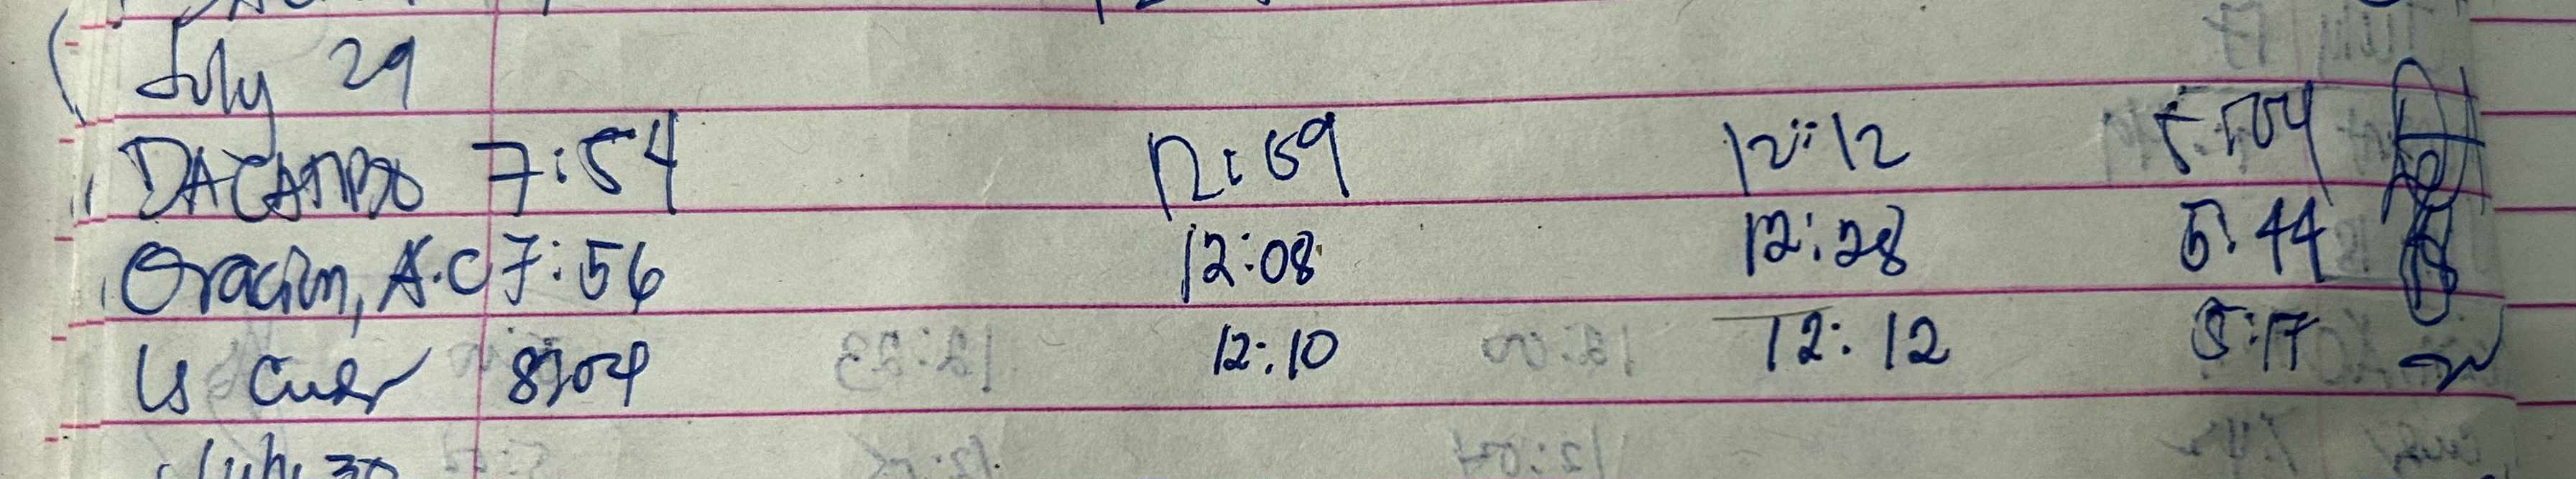 July 29
DACANDO 7:54 12:09 12:12 5:04
Oracion, A.C 7:56 12:08 12:28 5:44
8:04 12:10 12:12 5:17
July 30